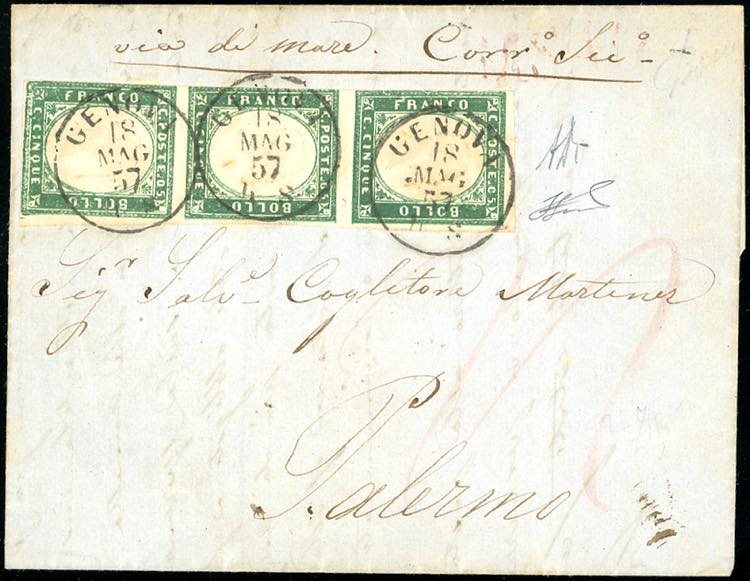 via di mare. Corr.º Sic.º
FRANCO
C. CINQUE
POSTE C. 5
BOLLO
GENOVA
18
MAG
57
FRANCO
C. CINQUE
POSTE C. 5
BOLLO
GENOVA
18
MAG
57
FRANCO
C. CINQUE
POSTE C. 5
BOLLO
GENOVA
18
MAG
57
Sig.r Salv.e Coglitore Martinez
Palermo